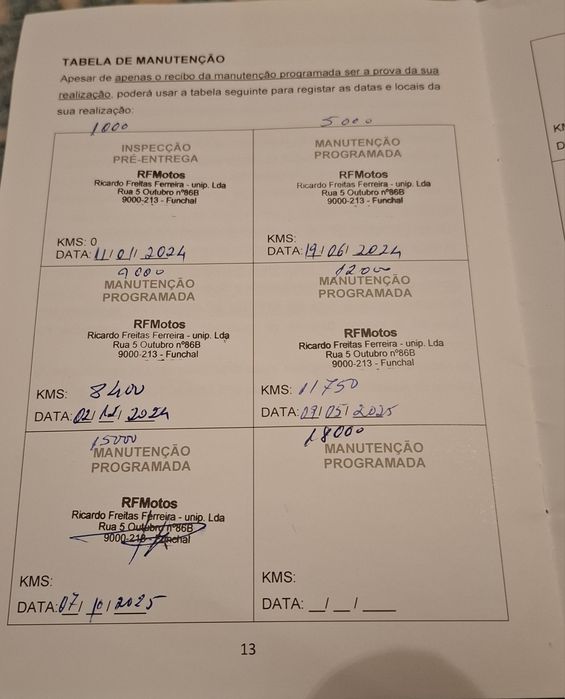 TABELA DE MANUTENÇÃO
Apesar de apenas o recibo da manutenção programada ser a prova da sua
realização, poderá usar a tabela seguinte para registar as datas e locais da
sua realização:
1000
INSPECÇÃO
PRÉ-ENTREGA
RFMotos
Ricardo Freitas Ferreira - unip. Lda
Rua 5 Outubro nº86B
9000-213 - Funchal
KMS: 0
DATA: 11/01/2024
5000
MANUTENÇÃO
PROGRAMADA
RFMotos
Ricardo Freitas Ferreira - unip. Lda
Rua 5 Outubro nº86B
9000-213 - Funchal
KMS:
DATA: 19/06/2024
9000
MANUTENÇÃO
PROGRAMADA
RFMotos
Ricardo Freitas Ferreira - unip. Lda
Rua 5 Outubro nº86B
9000-213 - Funchal
KMS: 8400
DATA: 02/12/2024
12000
MANUTENÇÃO
PROGRAMADA
RFMotos
Ricardo Freitas Ferreira - unip. Lda
Rua 5 Outubro nº86B
9000-213 - Funchal
KMS: 11750
DATA: 09/05/2025
15000
MANUTENÇÃO
PROGRAMADA
RFMotos
Ricardo Freitas Ferreira - unip. Lda
Rua 5 Outubro nº86B
9000-213 - Funchal
KMS:
DATA: 07/10/2025
18000
MANUTENÇÃO
PROGRAMADA
KMS:
DATA: __/__/____
13